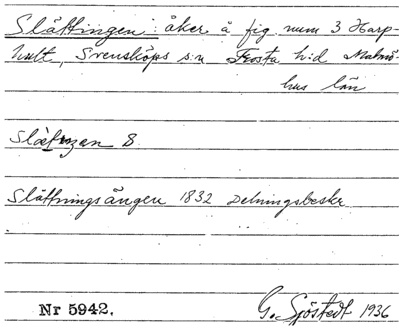 Slättingen: åker å fig num 3 Harp-
hult, Svensköps s:n Frosta h:d Malmö-
hus län
Slättningsängen 1832 Delningsbeskr
Nr 5942. G. Sjöstedt 1936